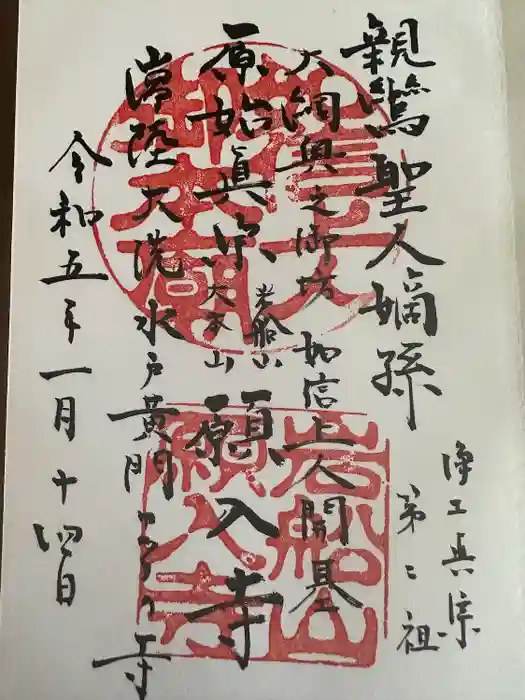 親鸞聖人嫡孫
浄土真宗
第二祖
大網興之御坊 如信上人開基
原始眞宗
岩船山
大本山
願入寺
常陸大洗 水戸黄門
寺
令和五年一月十四日
岩船山
願入寺